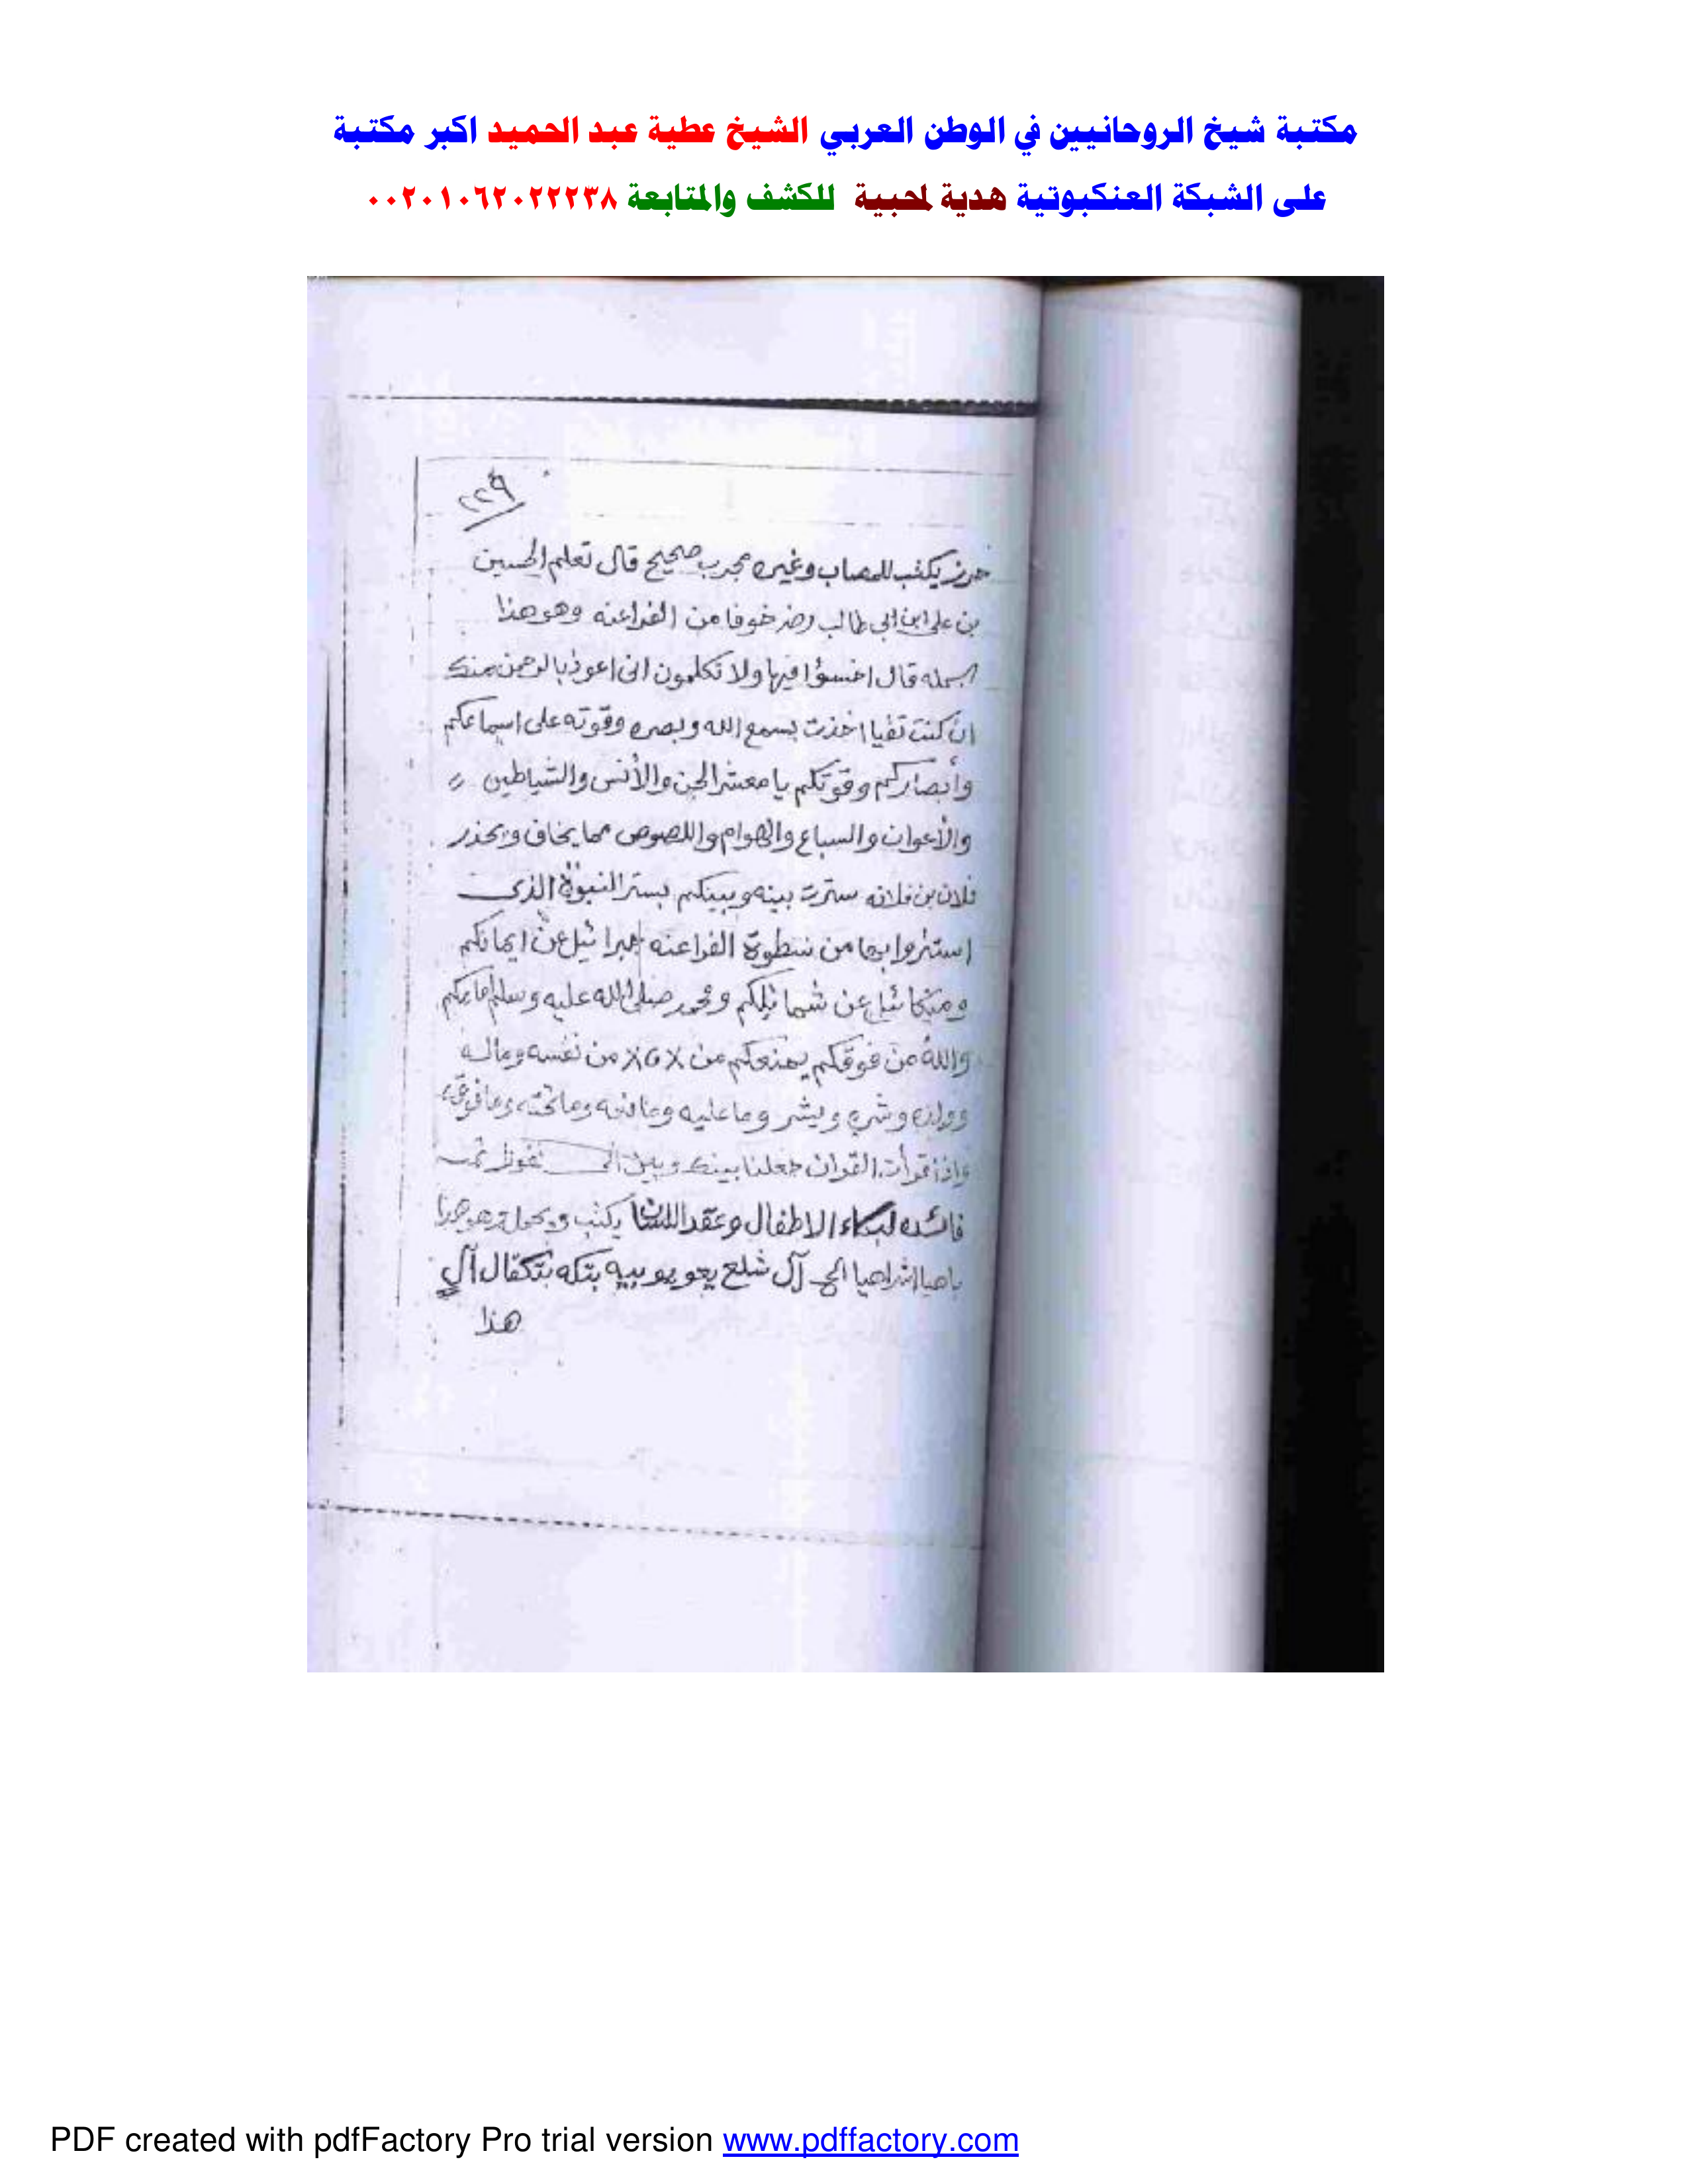 مكتبة شيخ الروحانيين في الوطن العربي الشيخ عطية عبد الحميد اكبر مكتبة
على الشبكة العنكبوتية هدية لمحبية للكشف والمتابعة ٠٠٢٠١٠٦٢٠٢٢٢٣٨
٢٢٩
حرز يكتب للمصاب وغيره مجرب صحيح قال تعلم الحسين
بن على ابن ابى طالب رضر خوفا من الفراعنه وهو هذا
البسمله قال اخسؤا فيها ولا تكلمون انى اعوذ بالرحمن منك
ان كنت تقيا اخذت بسمع الله وبصره وقوته على اسماعكم
وأبصاركم وقوتكم يا معشر الجن والأنس والشياطين
والأعوان والسباع والهوام واللصوص مما يخاف ويحذر
فلان بن فلانه سترت بينه وبينكم بستر النبوة الذى
استتروا بها من سطوة الفراعنه جبرائيل عن ايمانكم
وميكائيل عن شمائلكم ومحمد صلى الله عليه وسلم امامكم
والله من فوقكم يمنعكم من من نفسه وماله
وولده وما عليه وما تحته وما فوقه
واذا قرأت القران جعلنا بينك وبين الى نفورا تمت
فائده لبكاء الاطفال وعقد اللسان يكتب ويحمل وهو هذا
باهيا اشراهيا الحى آل شلع يعو يوبيه بتكه بتكفال آل
هذا
PDF created with pdfFactory Pro trial version www.pdffactory.com